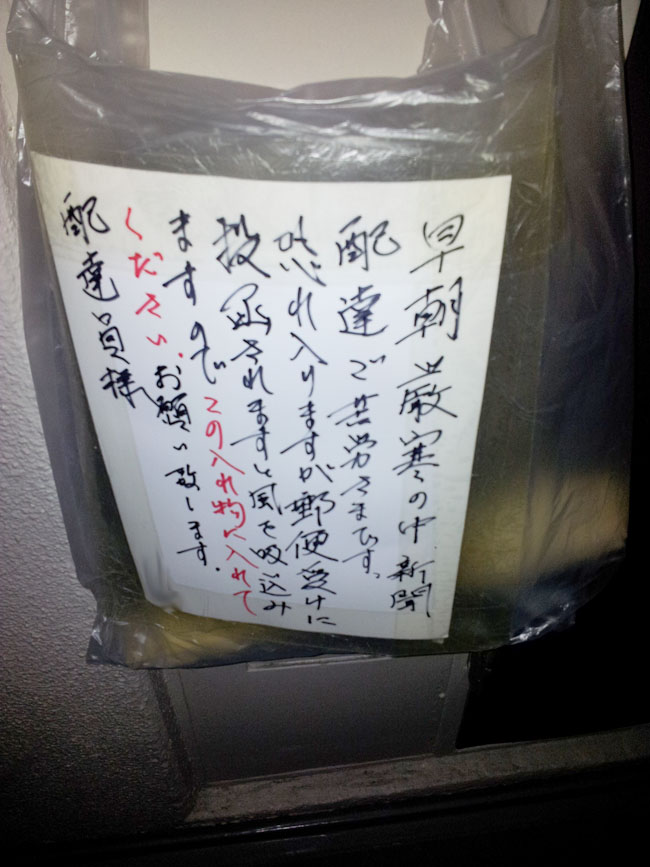 早朝厳寒の中新聞
配達ご苦労さまです、
恐れ入りますが郵便受けに
投函されますと風で吸込み
ますのでこの入れ物に入れて
ください、お願い致します.
配達員様